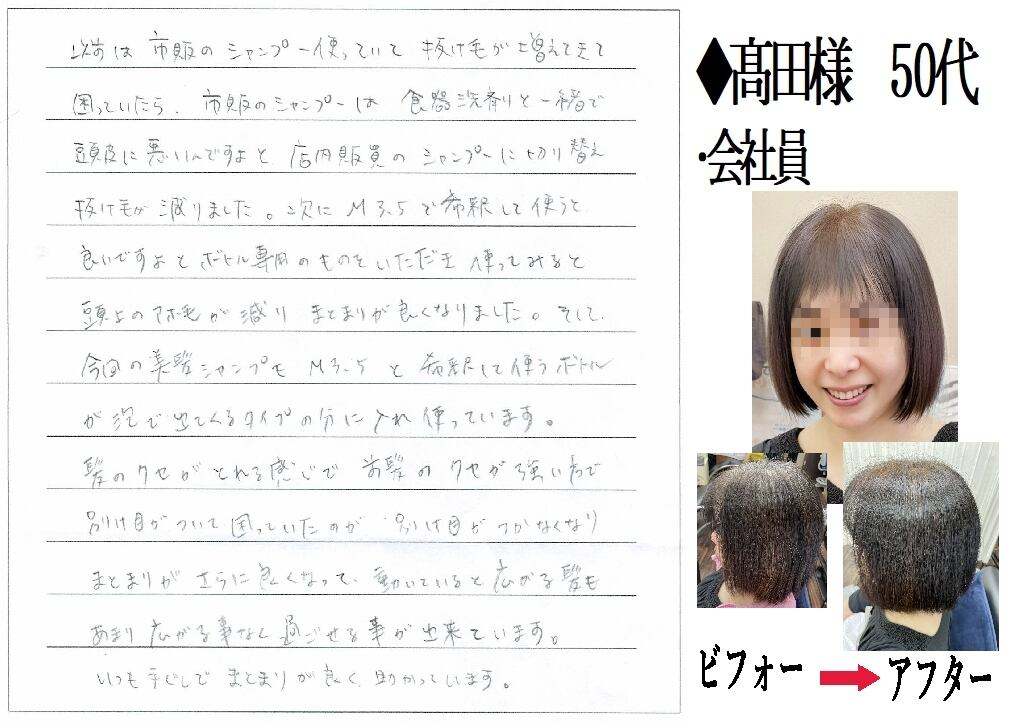 以前は市販のシャンプー使っていて抜け毛が増えてきて
困っていたら、市販のシャンプーは食器洗剤と一緒で
頭皮に悪いんですよと店内販買のシャンプーに切り替え
抜け毛が減りました。次にM3.5で希釈して使うと
良いですよとボトル専用のものをいただき使ってみると
頭上のアホ毛が減りまとまりが良くなりました。そして、
今回の美髪シャンプーもM3.5と希釈して使うボトル
が泡で出てくるタイプの分に入れ使っています。
髪のクセがとれる感じで前髪のクセが強い方で
別け目がついて困っていたのが別け目がつかなくなり
まとまりがさらに良くなって、動いていると広がる髪も
あまり広がる事なく過ごせる事が出来ています。
いつも手ぐしでまとまりが良く、助かっています。
♦髙田様 50代
・会社員
ビフォー
アフター